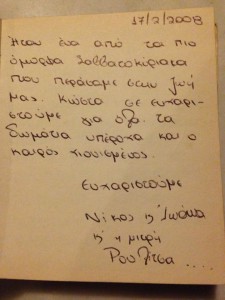 17/2/2008
Ήταν ένα από τα πιο
όμορφα Σαββατοκύριακα
που περάσαμε στην ζωή
μας. Κώστα σε ευχαρι-
στούμε για όλα. τα
δωμάτια υπέροχα και ο
καιρός χιονισμένος.
Ευχαριστούμε
Νίκος κ' Ιωάννα
κ' η μικρή
Ρουλίτσα ....